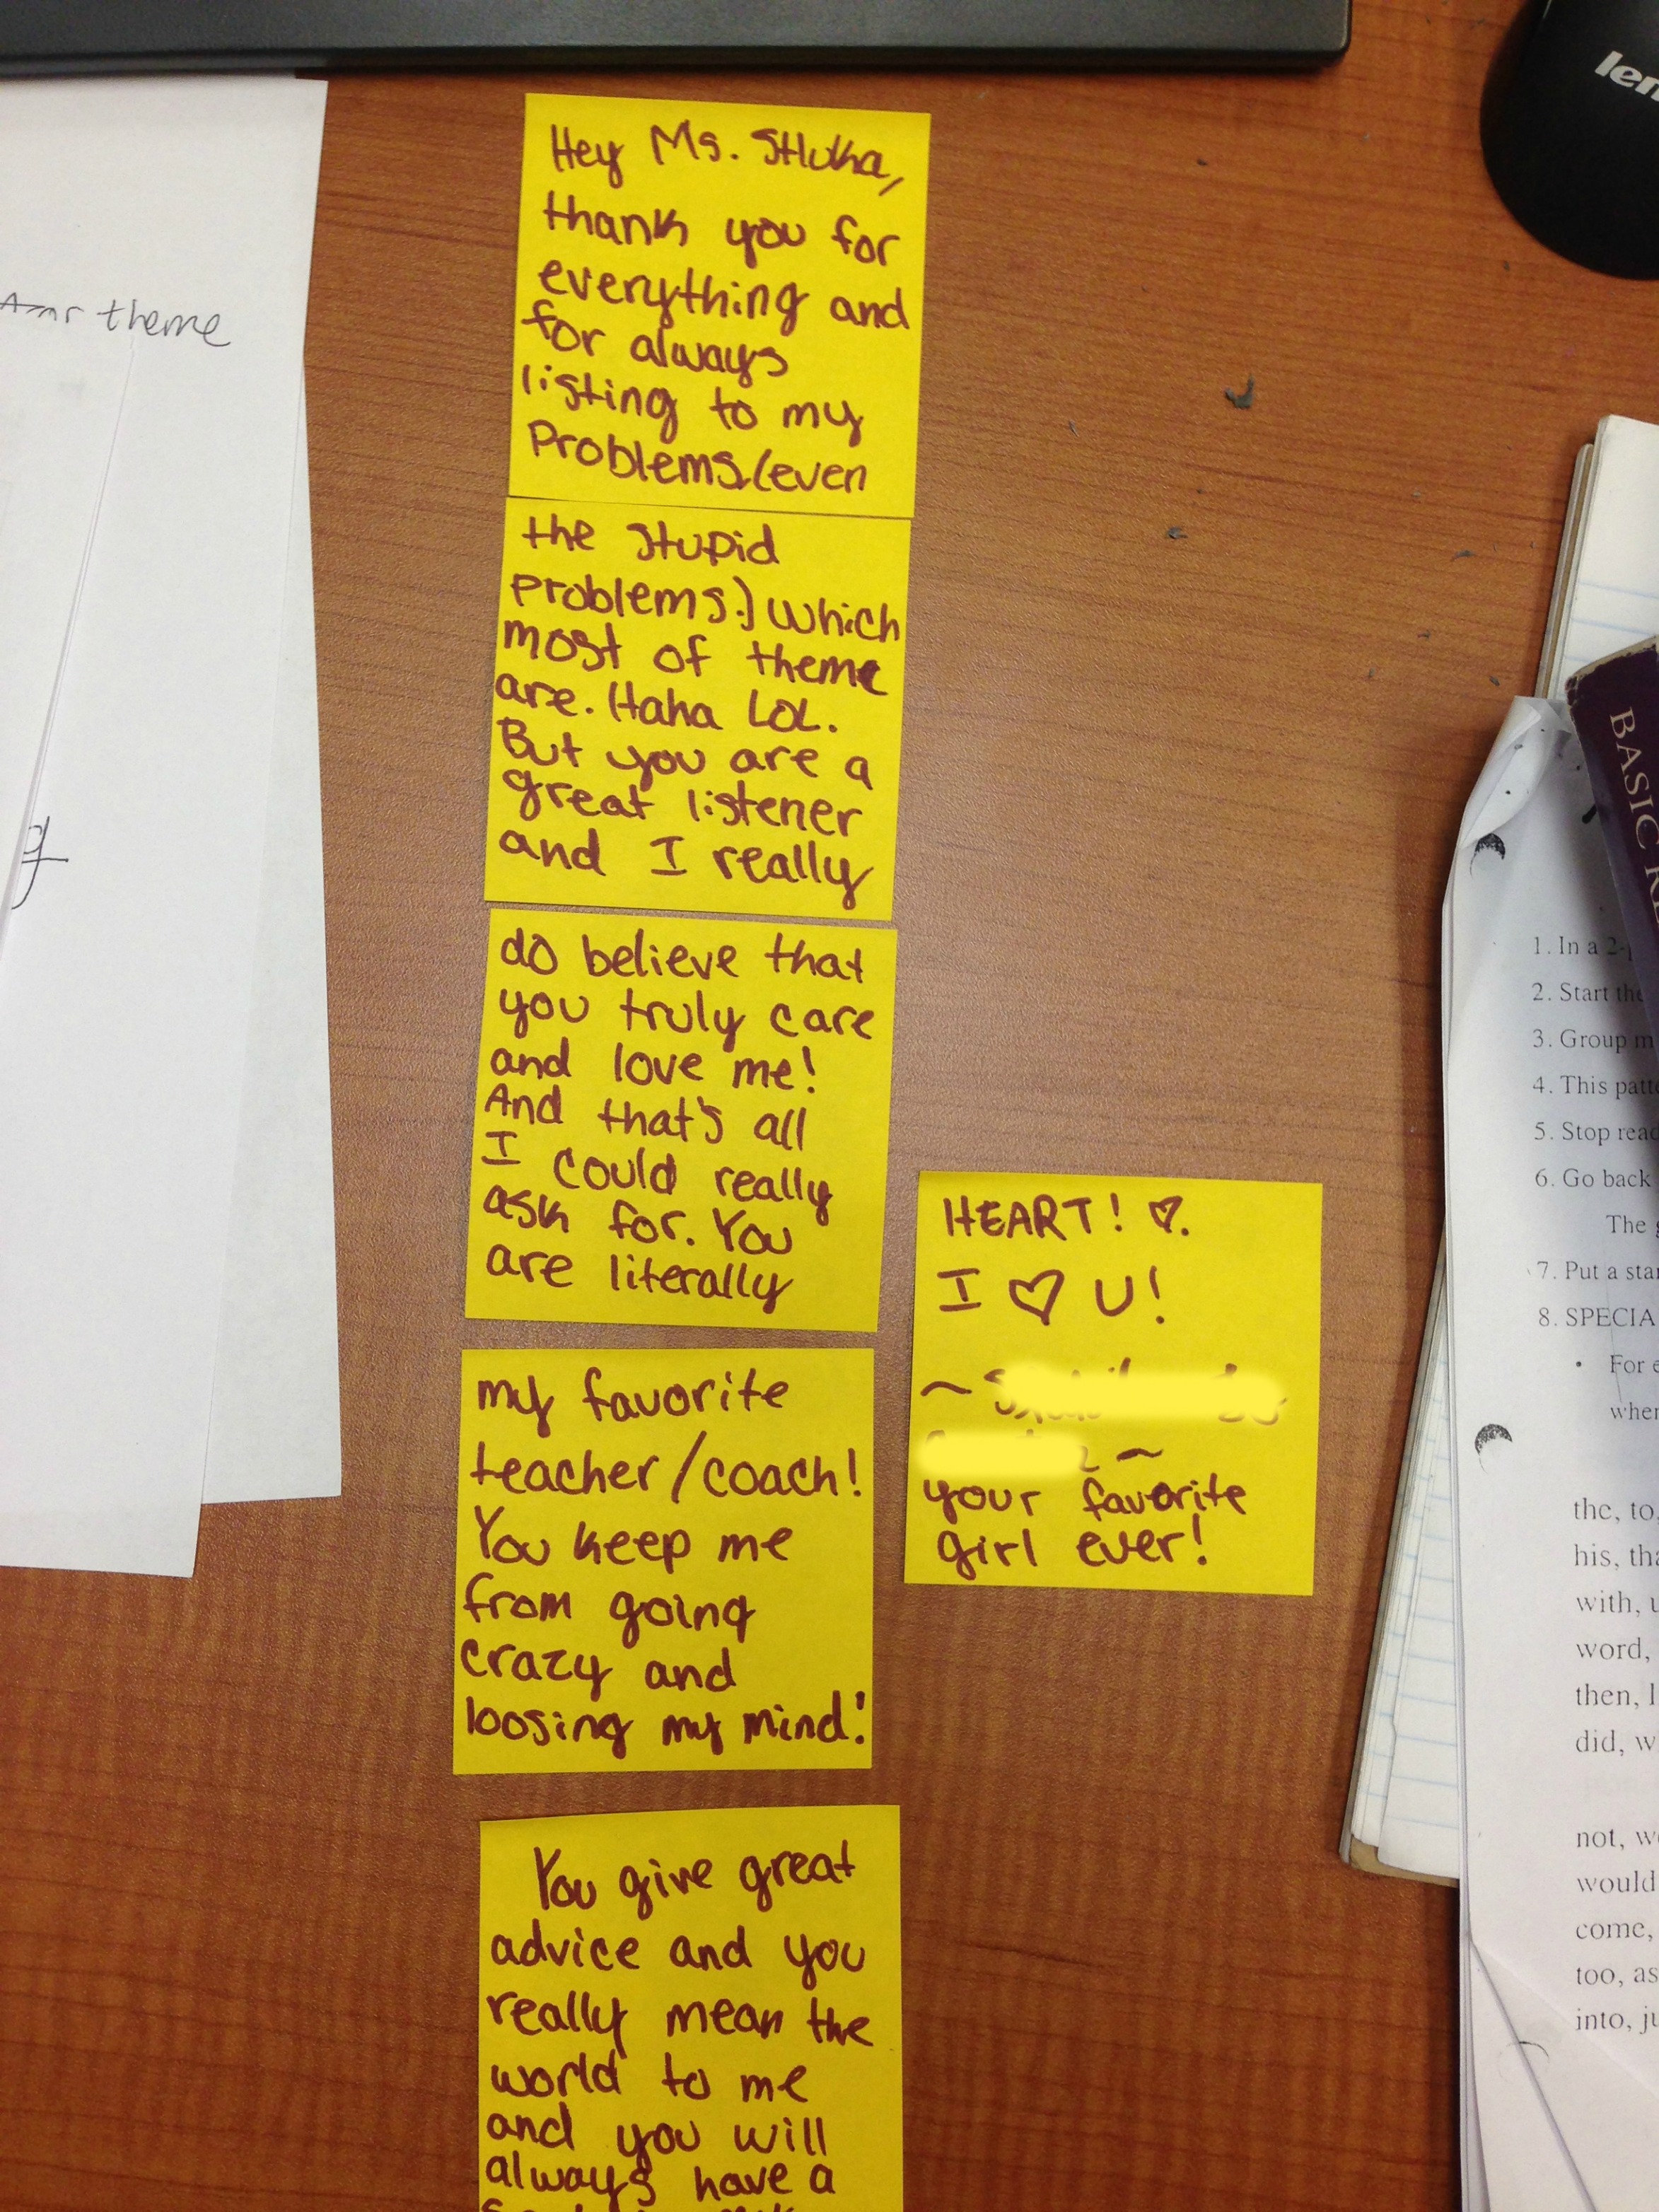 Hey Ms. Stluka,
thank you for
everything and
for always
listing to my
Problems.(even
the stupid
problems.) Which
most of theme
are. Haha LOL.
But you are a
great listener
and I really
do believe that
you truly care
and love me!
And that's all
I could really
ask for. You
are literally
my favorite
teacher/coach!
You keep me
from going
crazy and
loosing my mind!
You give great
advice and you
really mean the
world to me
and you will
always have a
HEART! ♡.
I ♡ U!
your favorite
girl ever!
theme
BASIC
1. In a 2-
2. Start the
3. Group m
4. This patt
5. Stop read
6. Go back
The
7. Put a sta
8. SPECIA
• For e
when
the, to,
his, tha
with, u
word,
then, l
did, w
not, w
would
come,
too, as
into, ju